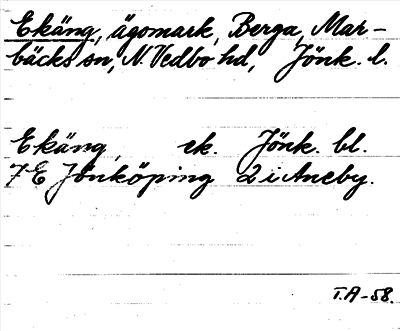 Ekäng, ägomark, Berga, Mar-
bäcks sn, N. Vedbo hd, Jönk. l.
Ekäng, ek. Jönk. bl.
7E Jönköping 2i Aneby.
T.A-58.